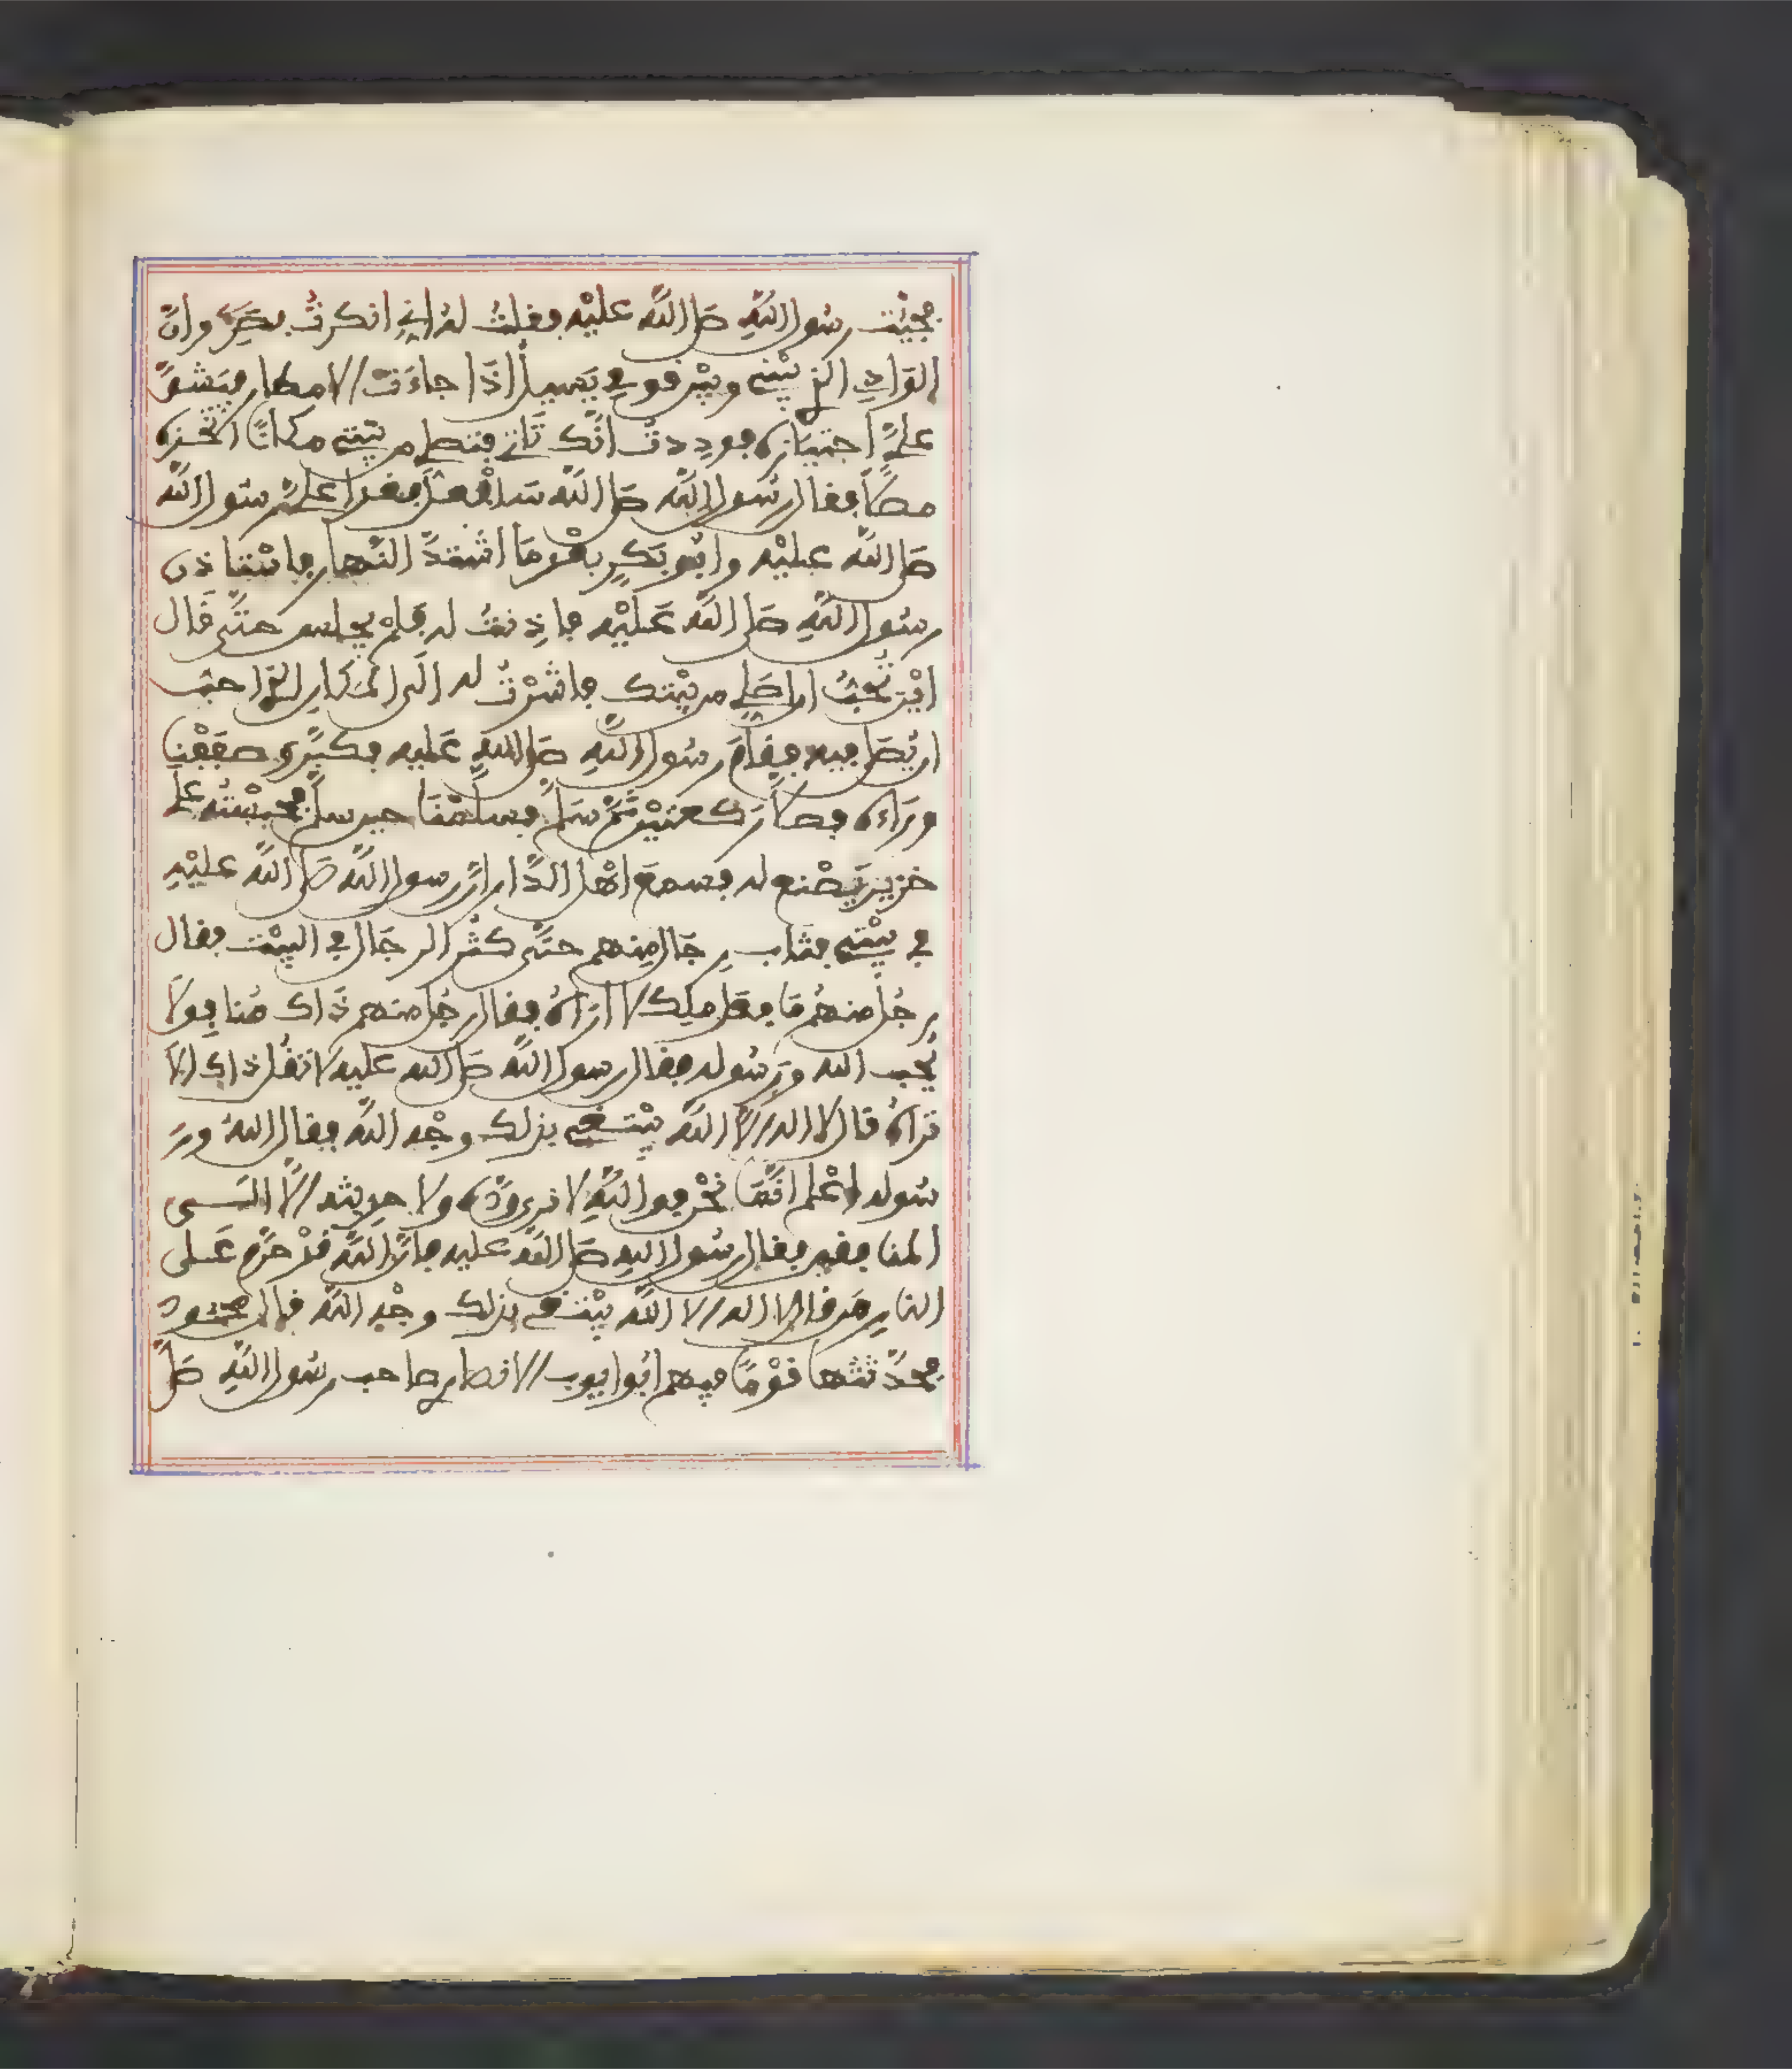 فجئت رسول الله صلى الله عليه فقلت له إني أنكرت بصري وإنّ
الوادي الذي بيني وبين قومي يسيل إذا جاءت الأمطار فيشقّ
عليّ اجتيازه فوددت أنّك تأتي فتصلي من بيتي مكانًا أتّخذه
مصلًّى فقال رسول الله صلى الله سأفعل فغدا عليّ رسول الله
صلى الله عليه وأبو بكر بعد ما اشتدّ النّهار فاستاذن
رسول الله صلى الله عليه فاذنت له فلم يجلس حتّى قال
أين تحبّ أن أصلي من بيتك فأشرت له إلى المكان الذي أحبّ
أن يصلي فيه فقام رسول الله صلى الله عليه فكبّر وصففنا
وراءه فصلّى ركعتين ثمّ سلّم فسلّمنا حين سلّم فحبسته على
خزير يصنع له فسمع أهل الدّار أنّ رسول الله صلى الله عليه
في بيتي فثاب رجال منهم حتّى كثر الرجال في البيت فقال
رجل منهم ما فعل ملك لا أراه فقال رجل منهم ذاك منافق لا
يحب الله ورسوله فقال رسول الله صلى الله عليه لا تقل ذاك ألا
تراه قال لا اله إلّا الله يبتغي بذلك وجه الله فقال الله ور
سوله أعلم أمّا نحن فوالله لا نرى ودّه ولا حديثه إلّا إلى
المنافقين فقال رسول الله صلى الله عليه فإنّ الله قد حرّم على
النار من قال لا اله إلا الله يبتغي بذلك وجه الله قال محمود
فحدّثتها قومًا فيهم أبو أيوب الانصاري صاحب رسول الله صلّى